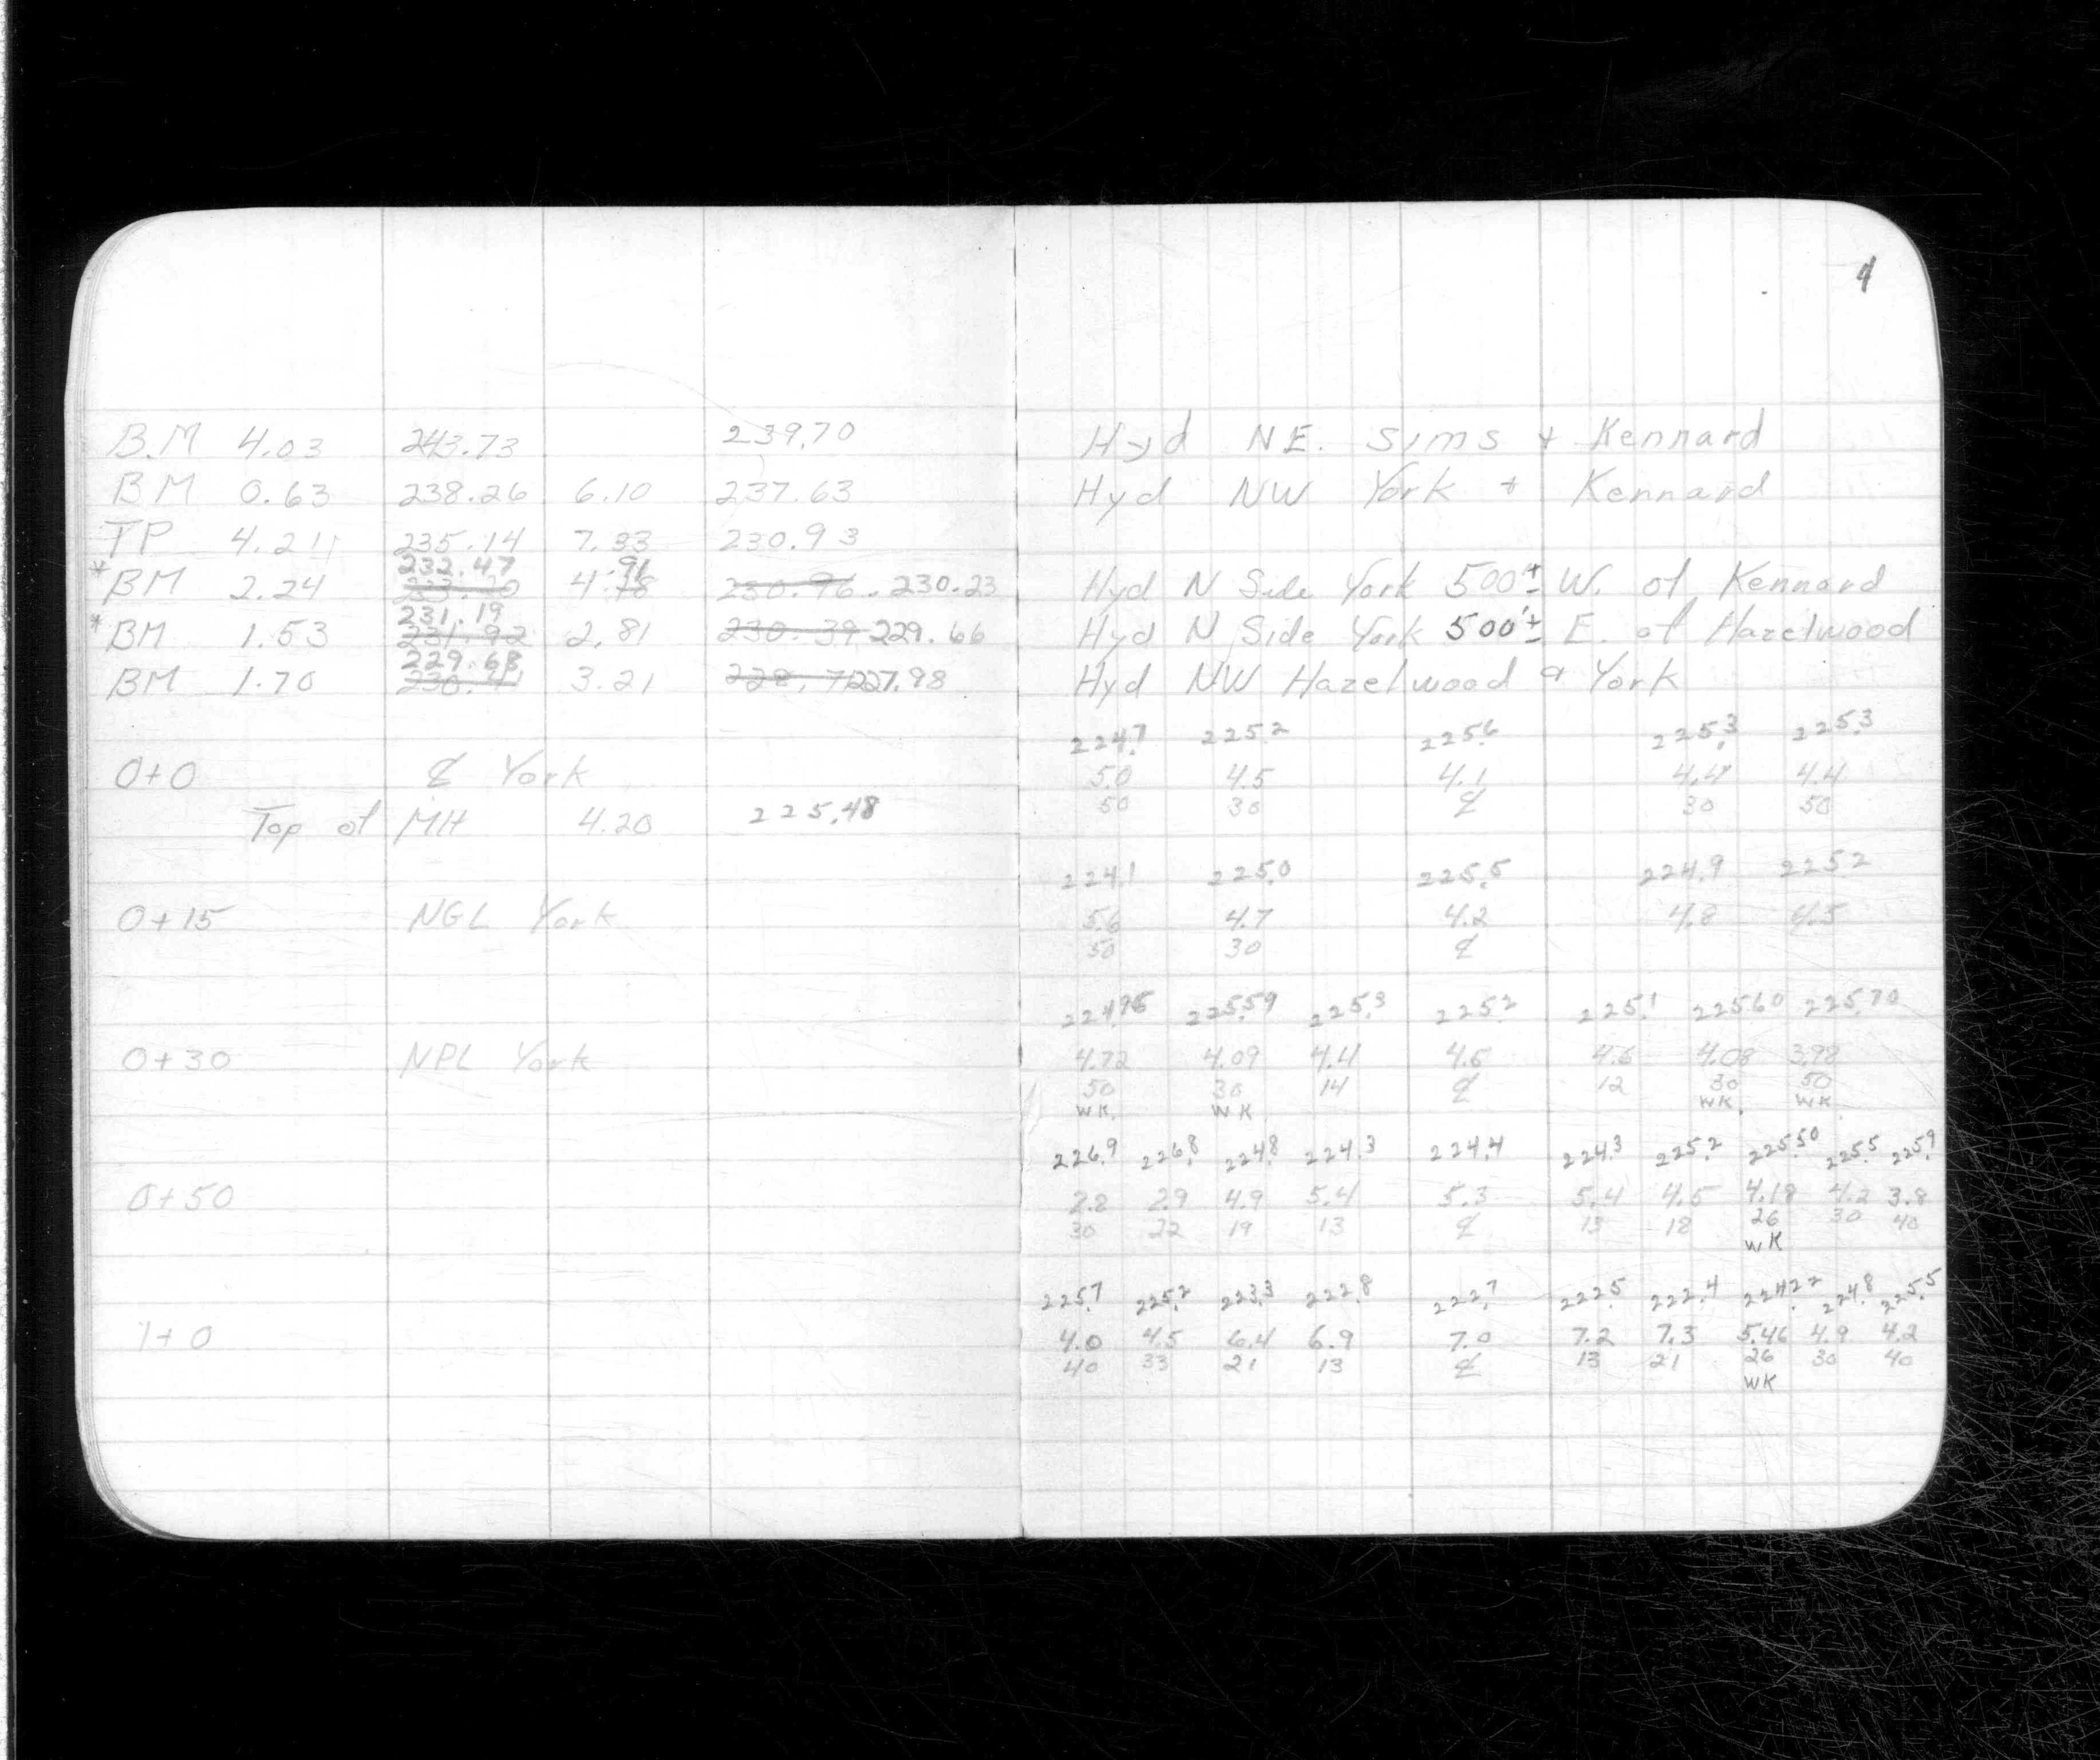 4
B.M 4.03 243.73 239.70 Hyd NE. Sims + Kennard
BM 0.63 238.26 6.10 237.63 Hyd NW York + Kennard
TP 4.21 235.14 7.33 230.93
232.47 .91
* BM 2.24 233.20 4.18 230.96 230.23 Hyd N Side York 500'± W. of Kennard
231.19
* BM 1.53 231.92 2.81 230.39 229.66 Hyd N Side York 500'± E. of Hazelwood
229.68
BM 1.70 230.41 3.21 228.71 227.98 Hyd NW Hazelwood & York
224.7 225.2 225.6 225.3 225.3
0+0 ℄ York 5.0 4.5 4.1 4.4 4.4
50 30 ℄ 30 50
Top of MH 4.20 225.48
224.1 225.0 225.5 224.9 225.2
0+15 NGL York 5.6 4.7 4.2 4.8 4.5
50 30 ℄
224.96 225.59 225.3 225.2 225.1 225.60 225.70
0+30 NPL York 4.72 4.09 4.4 4.5 4.6 4.08 3.98
50 30 14 ℄ 12 30 50
WK. WK. WK. WK.
226.9 226.8 224.8 224.3 224.4 224.3 225.2 225.50 225.5 225.9
0+50 2.8 2.9 4.9 5.4 5.3 5.4 4.5 4.18 4.2 3.8
30 22 19 13 ℄ 13 18 26 30 40
WK
225.7 225.2 223.3 222.8 222.7 222.5 222.4 224.22 224.8 225.5
1+0 4.0 4.5 6.4 6.9 7.0 7.2 7.3 5.46 4.9 4.2
40 33 21 13 ℄ 13 21 26 30 40
WK